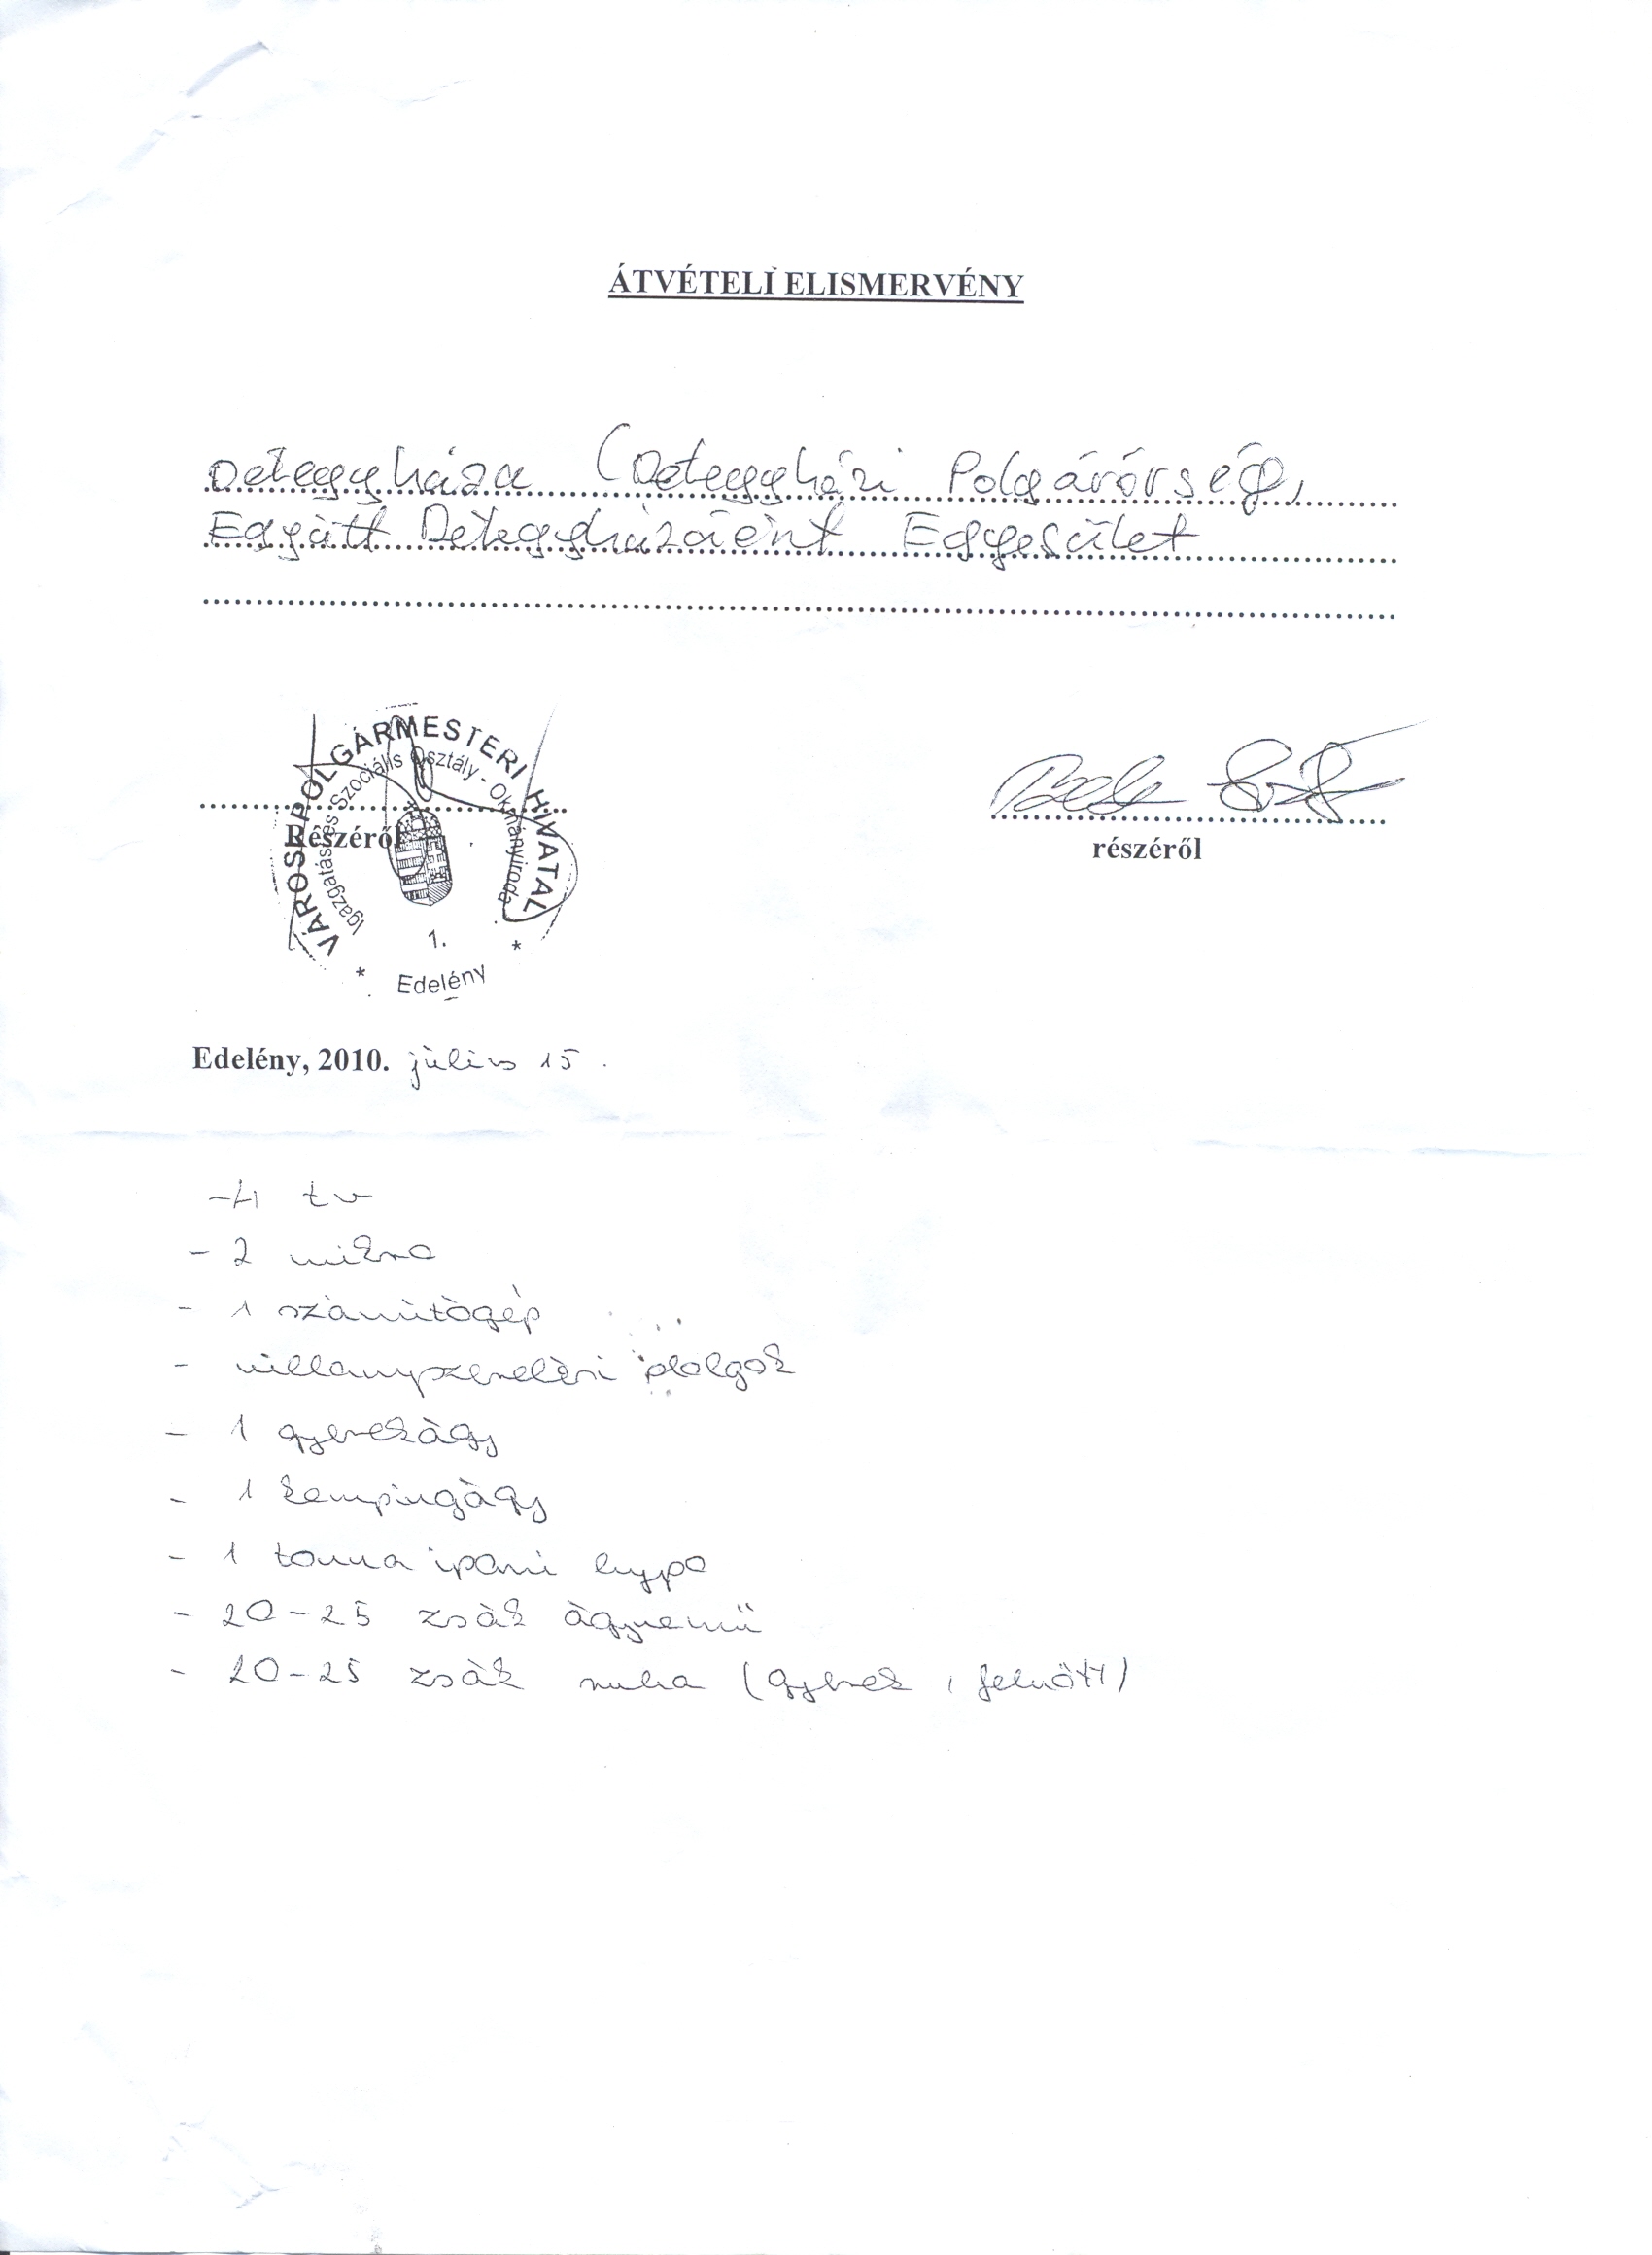 ÁTVÉTELI ELISMERVÉNY
Détegyháza (Détegyházi Polgárőrség,
Együtt Détegyházáént Egyesület
VÁROSI POLGÁRMESTERI HIVATAL
Igazgatási és Szociális Osztály - Okmányiroda
1.
* Edelény *
Részéről
részéről
Edelény, 2010. július 15.
- 4 tv
- 2 mikro
- 1 számítógép
- villanyszerelési dolgok
- 1 gyerekágy
- 1 kempingágy
- 1 tonna ipari hypo
- 20-25 zsák ágynemű
- 20-25 zsák ruha (gyerek, felnőtt)